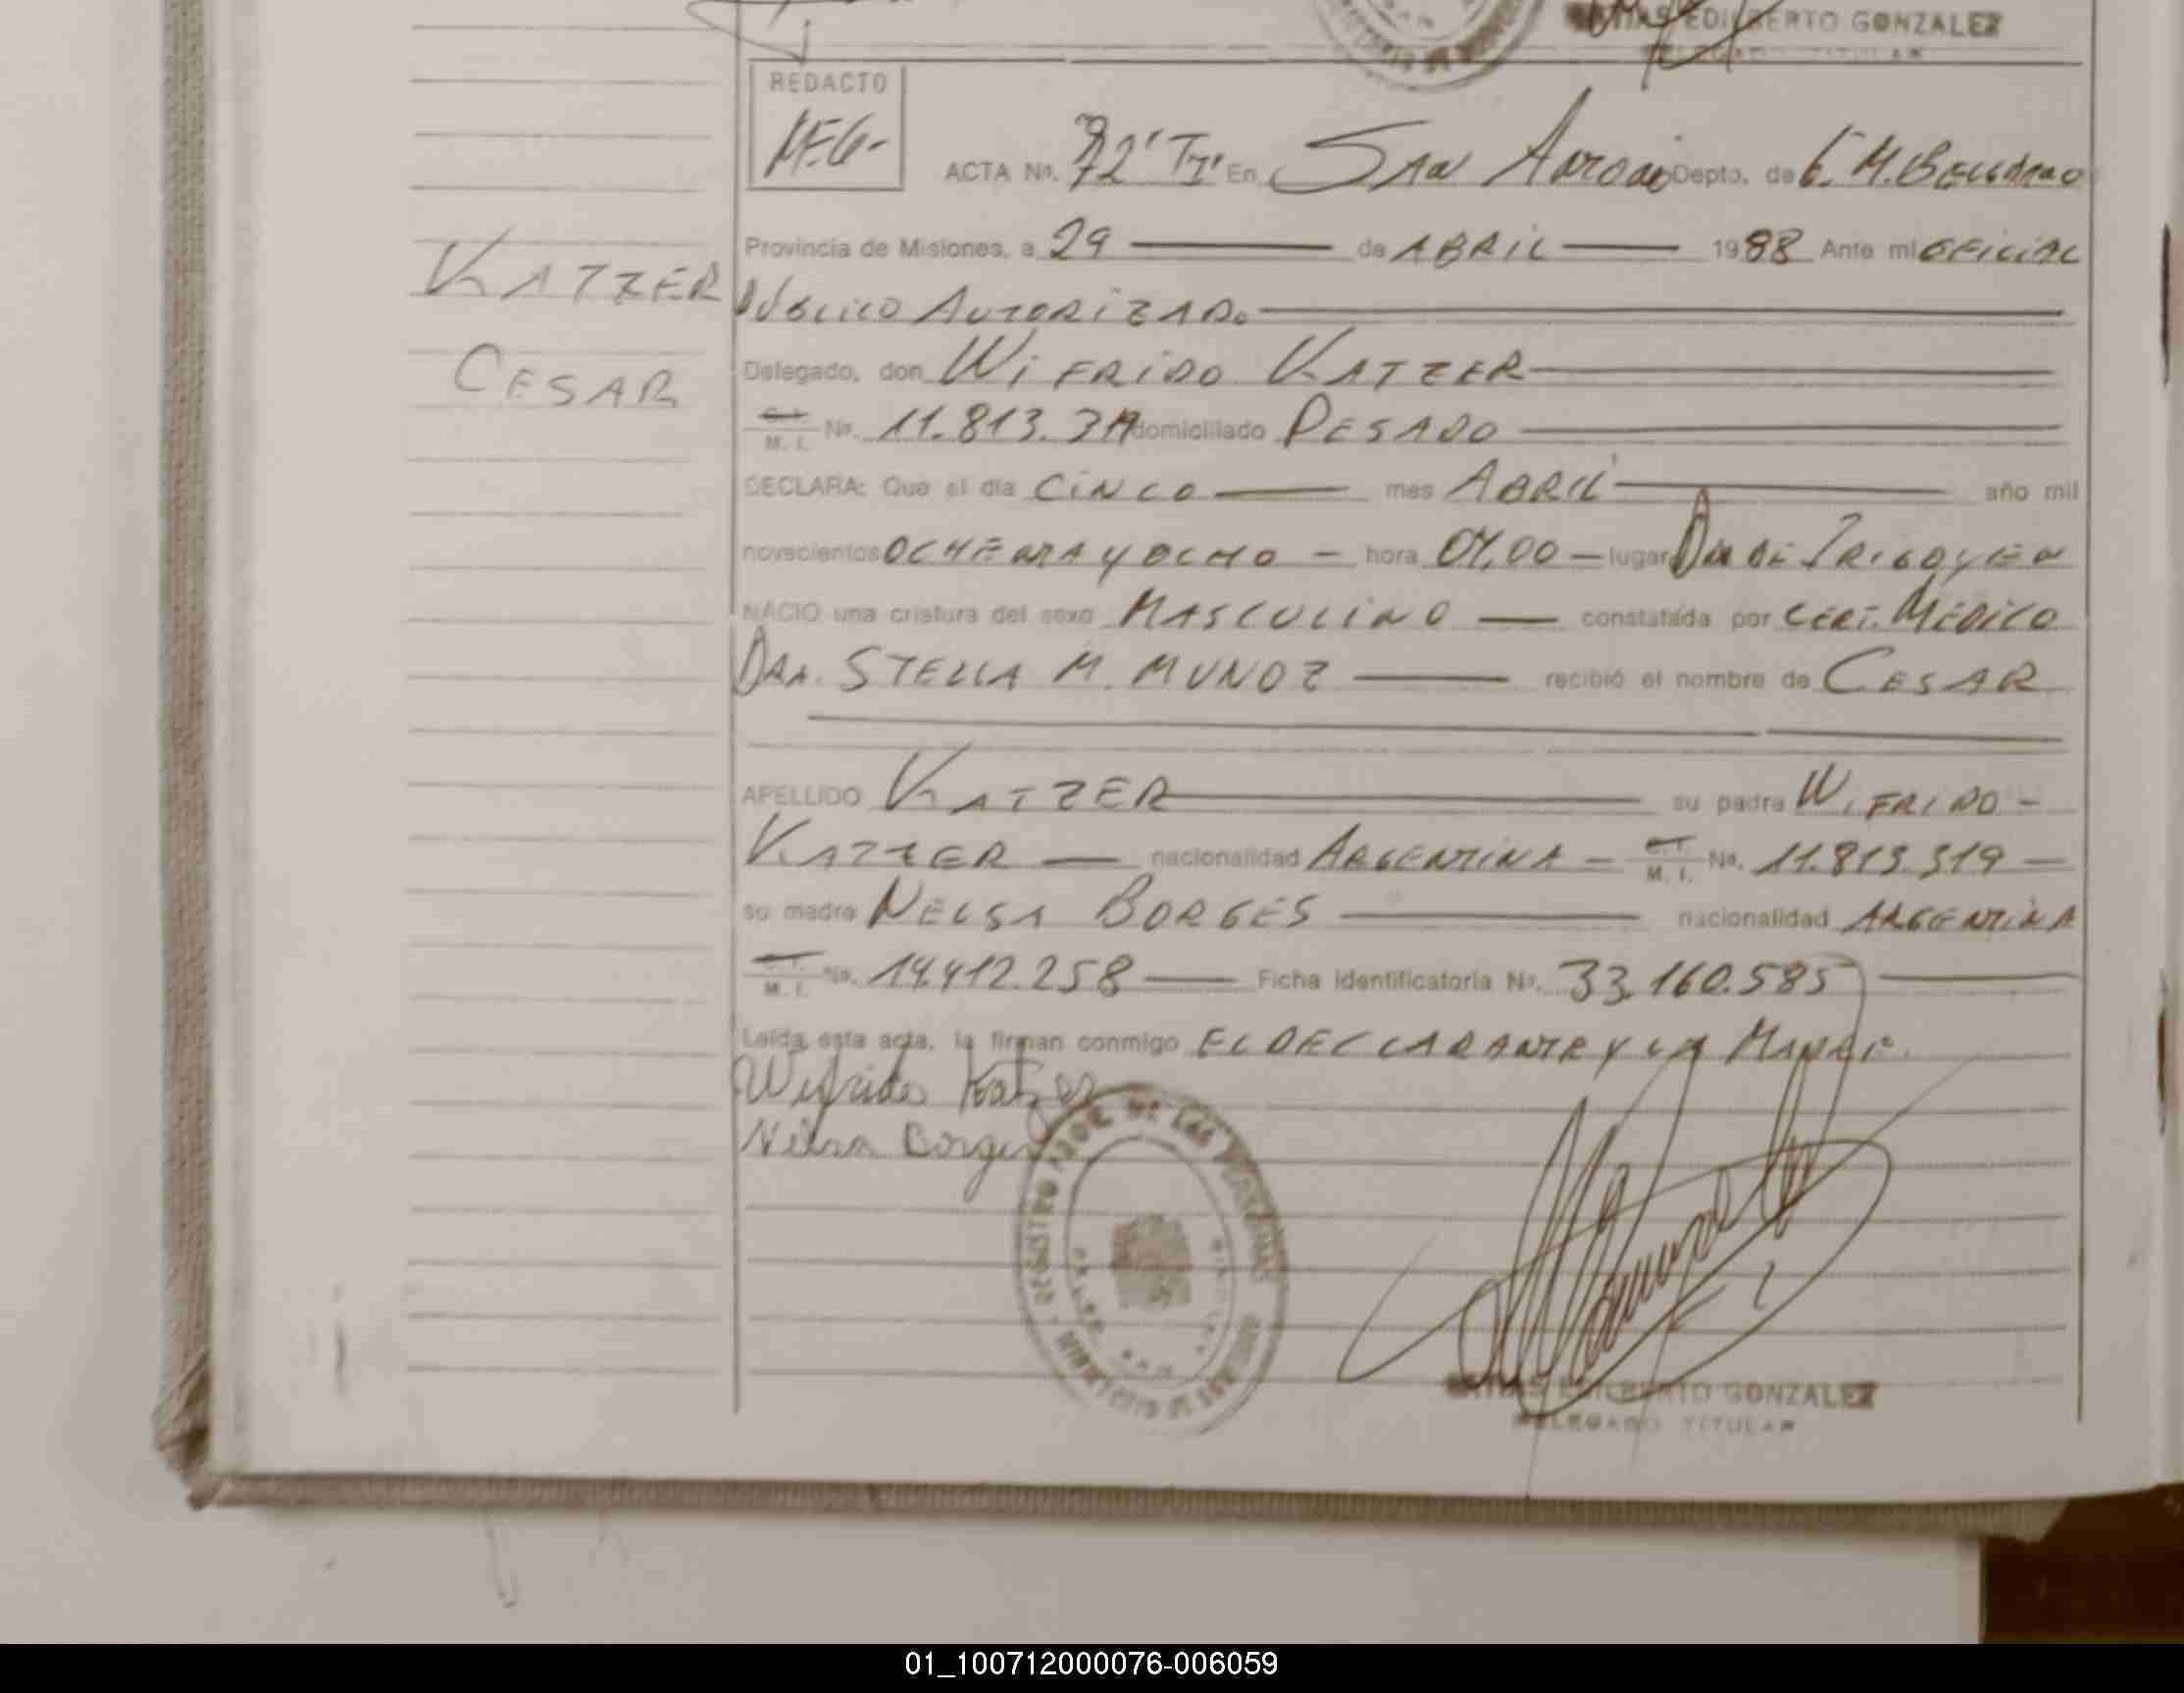 EDILBERTO GONZALEZ
REDACTO
ACTA Nº. 72 "T I" En SAN ANTONIO Depto. de G. M. BELGRANO
Provincia de Misiones, a 29 de ABRIL 1988 Ante mi OFICIAL
KATZER
PÚBLICO AUTORIZADO
CESAR
Delegado, don WIFRIDO KATZER
M. I. Nº. 11.813.319 domiciliado PESADO
DECLARA: Que el día CINCO mes ABRIL año mil
novecientos OCHENTA Y OCHO - hora 04,00 - lugar Bdo DE IRIGOYEN
NACIO una criatura del sexo MASCULINO constatada por CERT. MÉDICO
DRA. STELLA M. MUNOZ recibió el nombre de CESAR
APELLIDO KATZER su padre WIFRIDO -
KATZER nacionalidad ARGENTINA - C.I. M. I. Nº. 11.813.319
su madre NELSA BORGES nacionalidad ARGENTINA
M. I. No. 14.412.258 Ficha Identificatoria Nº. 33.160.585
Leída esta acta, la firman conmigo EL DECLARANTE Y LA MADRE.
Wifrido Katzer
Nelsa Borges
REGISTRO PROV. DE LAS PERSONAS
EDILBERTO GONZALEZ
DELEGADO TITULAR
01_100712000076-006059